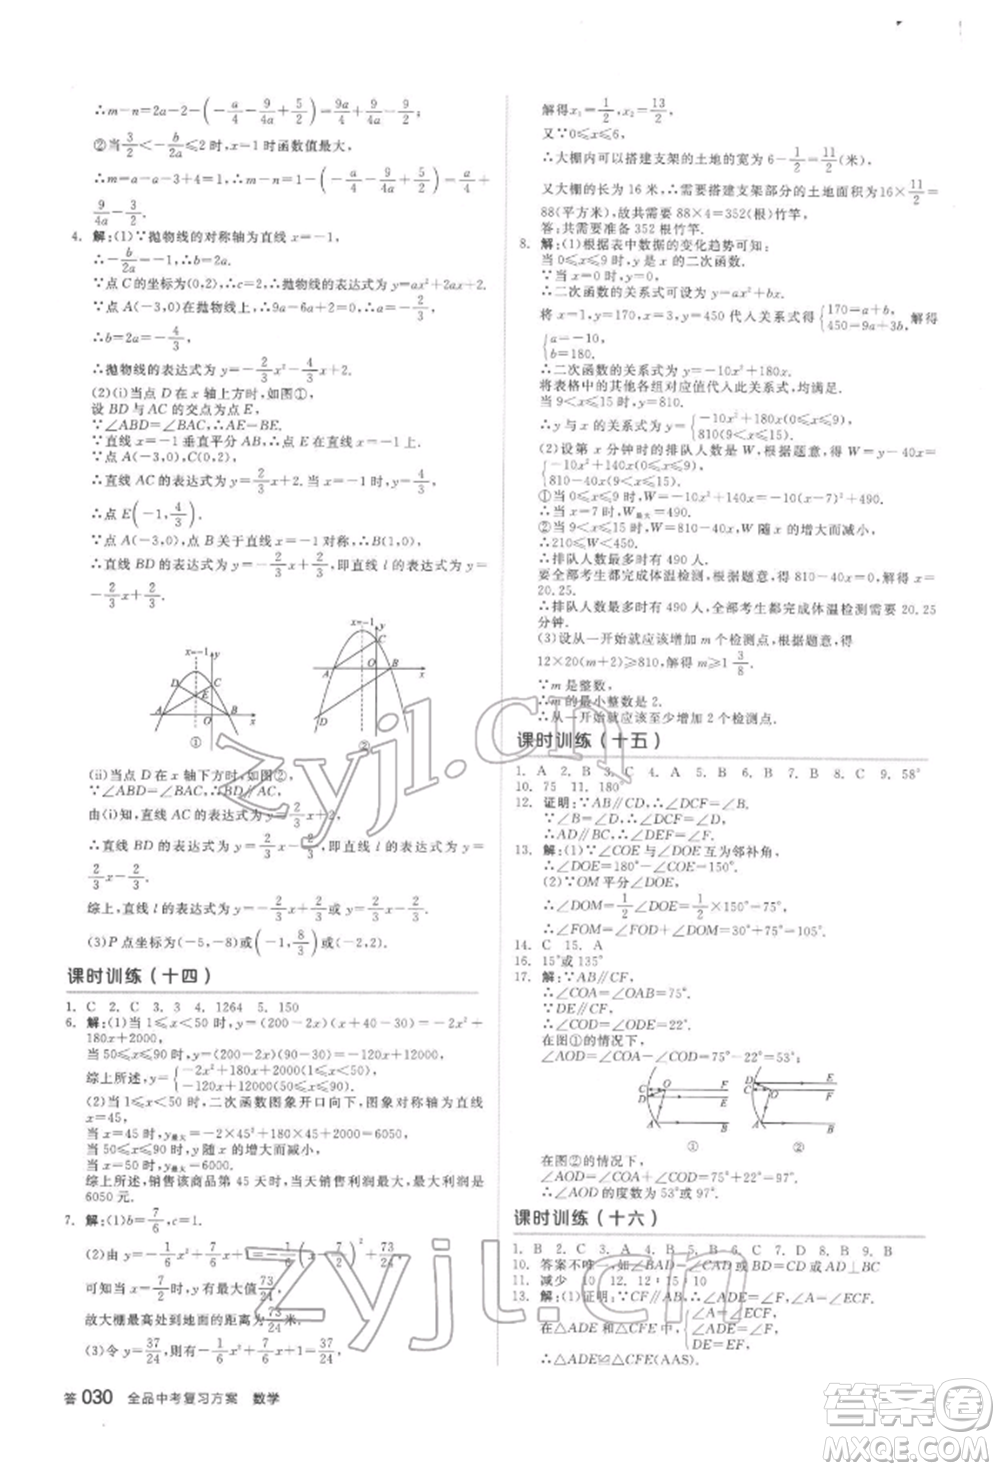 ∴m−n=2a−2−(−a/4−9/4a+5/2)=9a/4+9/4a−9/2.
②当3/2<−b/2a≤2时,x=1时函数值最大,
∴m−n=a−a−3+4=1−(−a/4−9/4a+5/2)=a/4+
9/4a−3/2.
4. 解:(1)∵抛物线的对称轴为直线x=−1,
∴−b/2a=−1,∴b=2a.
∵点C的坐标为(0,2),∴抛物线的表达式为y=ax²+2ax+2.
∵点A(−3,0)在抛物线上,∴9a−6a+2=0,∴a=−2/3,
∴b=2a=−4/3,
∴抛物线的表达式为y=−2/3x²−4/3x+2.
(2)(i)当点D在x轴上方时,如图①,
设BD与AC的交点为点E,
∵∠ABD=∠BAC,∴AE=BE.
∵直线x=−1垂直平分AB,∴点E在直线x=−1上.
∵点A(−3,0),C(0,2),
∴直线AC的表达式为y=2/3x+2.当x=−1时,y=4/3,
∴点E(−1,4/3).
∵点A(−3,0),点B关于直线x=−1对称,∴B(1,0),
∴直线BD的表达式为y=−2/3x+2/3,即直线l的表达式为y=−
2/3x+2/3.
x=−1 y D C E A O B x ①
x=−1 y C A O B x D ②
(ii)当点D在x轴下方时,如图②,
∵∠ABD=∠BAC,∴BD∥AC.
由(i)知,直线AC的表达式为y=2/3x+2,
∴直线BD的表达式为y=2/3x−2/3,即直线l的表达式为y=
2/3x−2/3.
综上,直线l的表达式为y=−2/3x+2/3或y=2/3x−2/3.
(3)P点坐标为(−5,−8)或(−1,8/3)或(−1,−8).
课时训练(十四)
1. C 2. C 3. 3 4. 1264 5. 150
6. 解:(1)当1≤x<50时,y=(200−2x)(x+40−30)=−2x²+
180x+2000,
当50≤x≤90时,y=(200−2x)(90−30)=−120x+12000,
综上所述,y={−2x²+180x+2000(1≤x<50),
−120x+12000(50≤x≤90).
(2)当1≤x<50时,二次函数图象开口向下,图象对称轴为直线
x=45,
当x=45时,y最大=−2×45²+180×45+2000=6050,
当50≤x≤90时,y随x的增大而减小,
当x=50时,y最大=6000.
综上所述,销售该商品第45天时,当天销售利润最大,最大利润是
6050元.
7. 解:(1)b=7/6,c=1.
(2)由y=−x²+7/6x+1=−(x−7/12)²+
可知当x=时,y有最大值73/24,
故大棚最高处到地面的距离为73/24米.
(3)令y=37/24,则有−x²+7/6x+1=37/24,
答030 全品中考复习方案 数学
解得x₁=1/2,x₂=13/2.
又∵0≤x≤6,
∴大棚内可以搭建支架的土地的宽为6−1/2=11/2(米),
又大棚的长为16米,∴需要搭建支架部分的土地面积为16×11/2=
88(平方米),故共需要88×4=352(根)竹竿.
答:共需要准备352(根)竹竿.
8. 解:(1)根据表中数据的变化趋势可知:
当0≤x≤9时,y是x的二次函数.
∵当x=0时,y=0,
∴二次函数的关系式可设为y=ax²+bx.
将x=1,y=170,x=3,y=450代入关系式{170=a+b,
450=9a+3b,解得
{a=−10,
b=180.
∴二次函数的关系式为y=−10x²+180x,
将表格中的其他各组对应值代入此关系式,均满足.
当9<x≤15时,y=810.
∴y与x的关系式为y={−10x²+180x(0≤x≤9),
810(9<x≤15).
(2)设第x分钟时的排队人数是W,根据题意,得W=y−40x=
{−10x²+140x(0≤x≤9),
810−40x(9<x≤15).
①当0≤x≤9时,W=−10x²+140x=−10(x−7)²+490,
∴当x=7时,W最大=490.
②当9<x≤15时,W=810−40x,W随x的增大而减小,
∴210≤W<450.
∴排队人数最多时有490人.
要全部考生都完成体温检测,根据题意,得810−40x=0,解得x=
20.25.
∴排队人数最多时有490人,全部考生都完成体温检测需要20.25
分钟.
(3)设从一开始就应该增加m个检测点,根据题意,得
12×20(m+2)≥810,解得m≥1 3/8.
∵m是整数,
∴m的最小整数是2.
∴从一开始就应该至少增加2个检测点.
课时训练(十五)
1. A 2. B 3. C 4. A 5. B 6. B 7. B 8. C 9. 58°
10. 75 11. 180°
12. 证明:∵AB∥CD,∴∠DCF=∠B.
∵∠B=∠D,∴∠DCF=∠D,
∴AD∥BC,∴∠DEF=∠F.
13. 解:(1)∵∠COE与∠DOE互为邻补角,
∴∠DOE=180°−∠COE=150°.
(2)∵OM平分∠DOE,
∴∠DOM=1/2∠DOE=1/2×150°=75°,
∴∠FOM=∠DOF+∠DOM=30°+75°=105°.
14. C 15. A
16. 15°或135°
17. 解:∵AB∥CF,
∴∠COA=∠OAB=75°.
∵DE∥CF,
∴∠COD=∠ODE=22°.
在图①的情况下,
∠AOD=∠COA−∠COD=75°−22°=53°.
C O F D E A B ①
D E C O F A B ②
在图②的情况下,
∠AOD=∠COA+∠COD=75°+22°=97°.
∴∠AOD的度数为53°或97°.
课时训练(十六)
1. B 2. C 3. A 4. C 5. B 6. B 7. D 8. B 9. B
10. 答案不唯一,如∠BAD=∠CAD或BD=CD或AD⊥BC
11. 减少 10 12. 12:15:10
13. 解:(1)证明:∵CF∥AB,∴∠ADE=∠F.
在△ADE和△CFE中,{∠ADE=∠F,
∠AED=∠CEF,
AE=CE,
∴△ADE≌△CFE(AAS).
zyjl.cn
zyjl.cn
答案圈
MXQE.COM